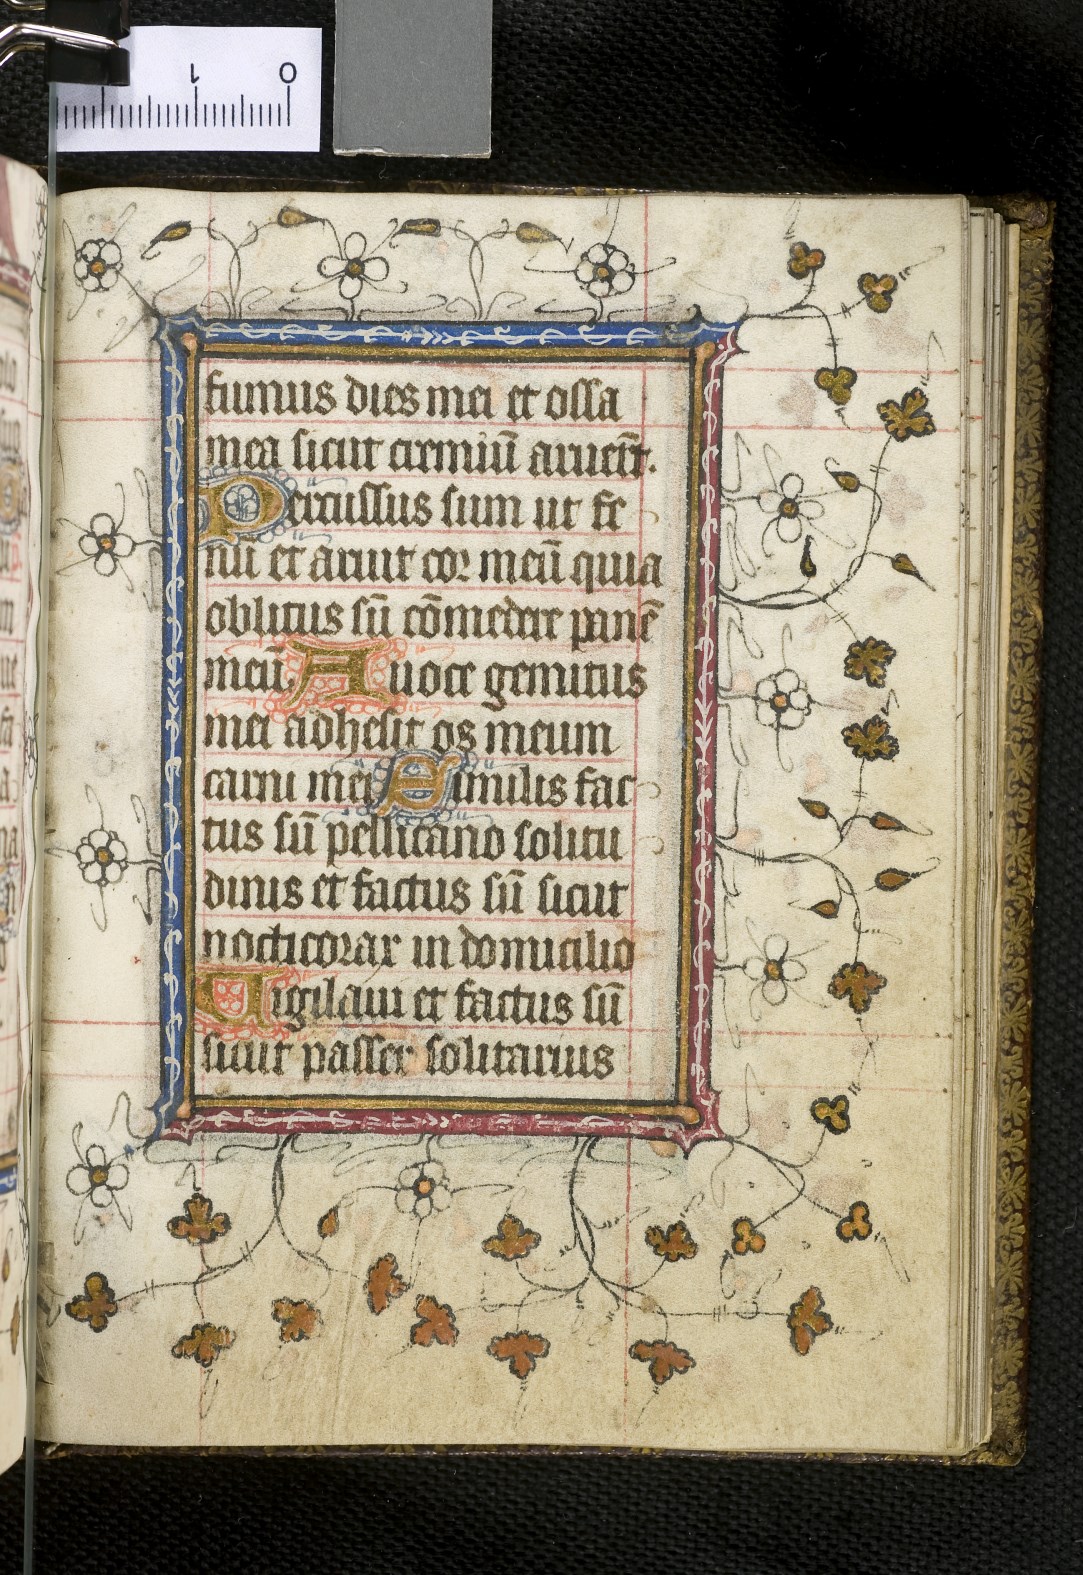 0
1
fumus dies mei et ossa
mea sicut cremiū aruer̄t.
Percussus sum ut fe
nū et aruit cor meū quia
oblitus sū cōmedere panē
meū. A uoce gemitus
mei adhesit os meum
carni mei Similis fac
tus sū pellicano solitu
dinis et factus sū sicut
nocticorax in domicilio
Uigilaui et factus sū
sicut passer solitarius